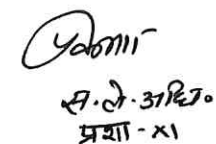 स. ले. अधि.
प्रशा - XI